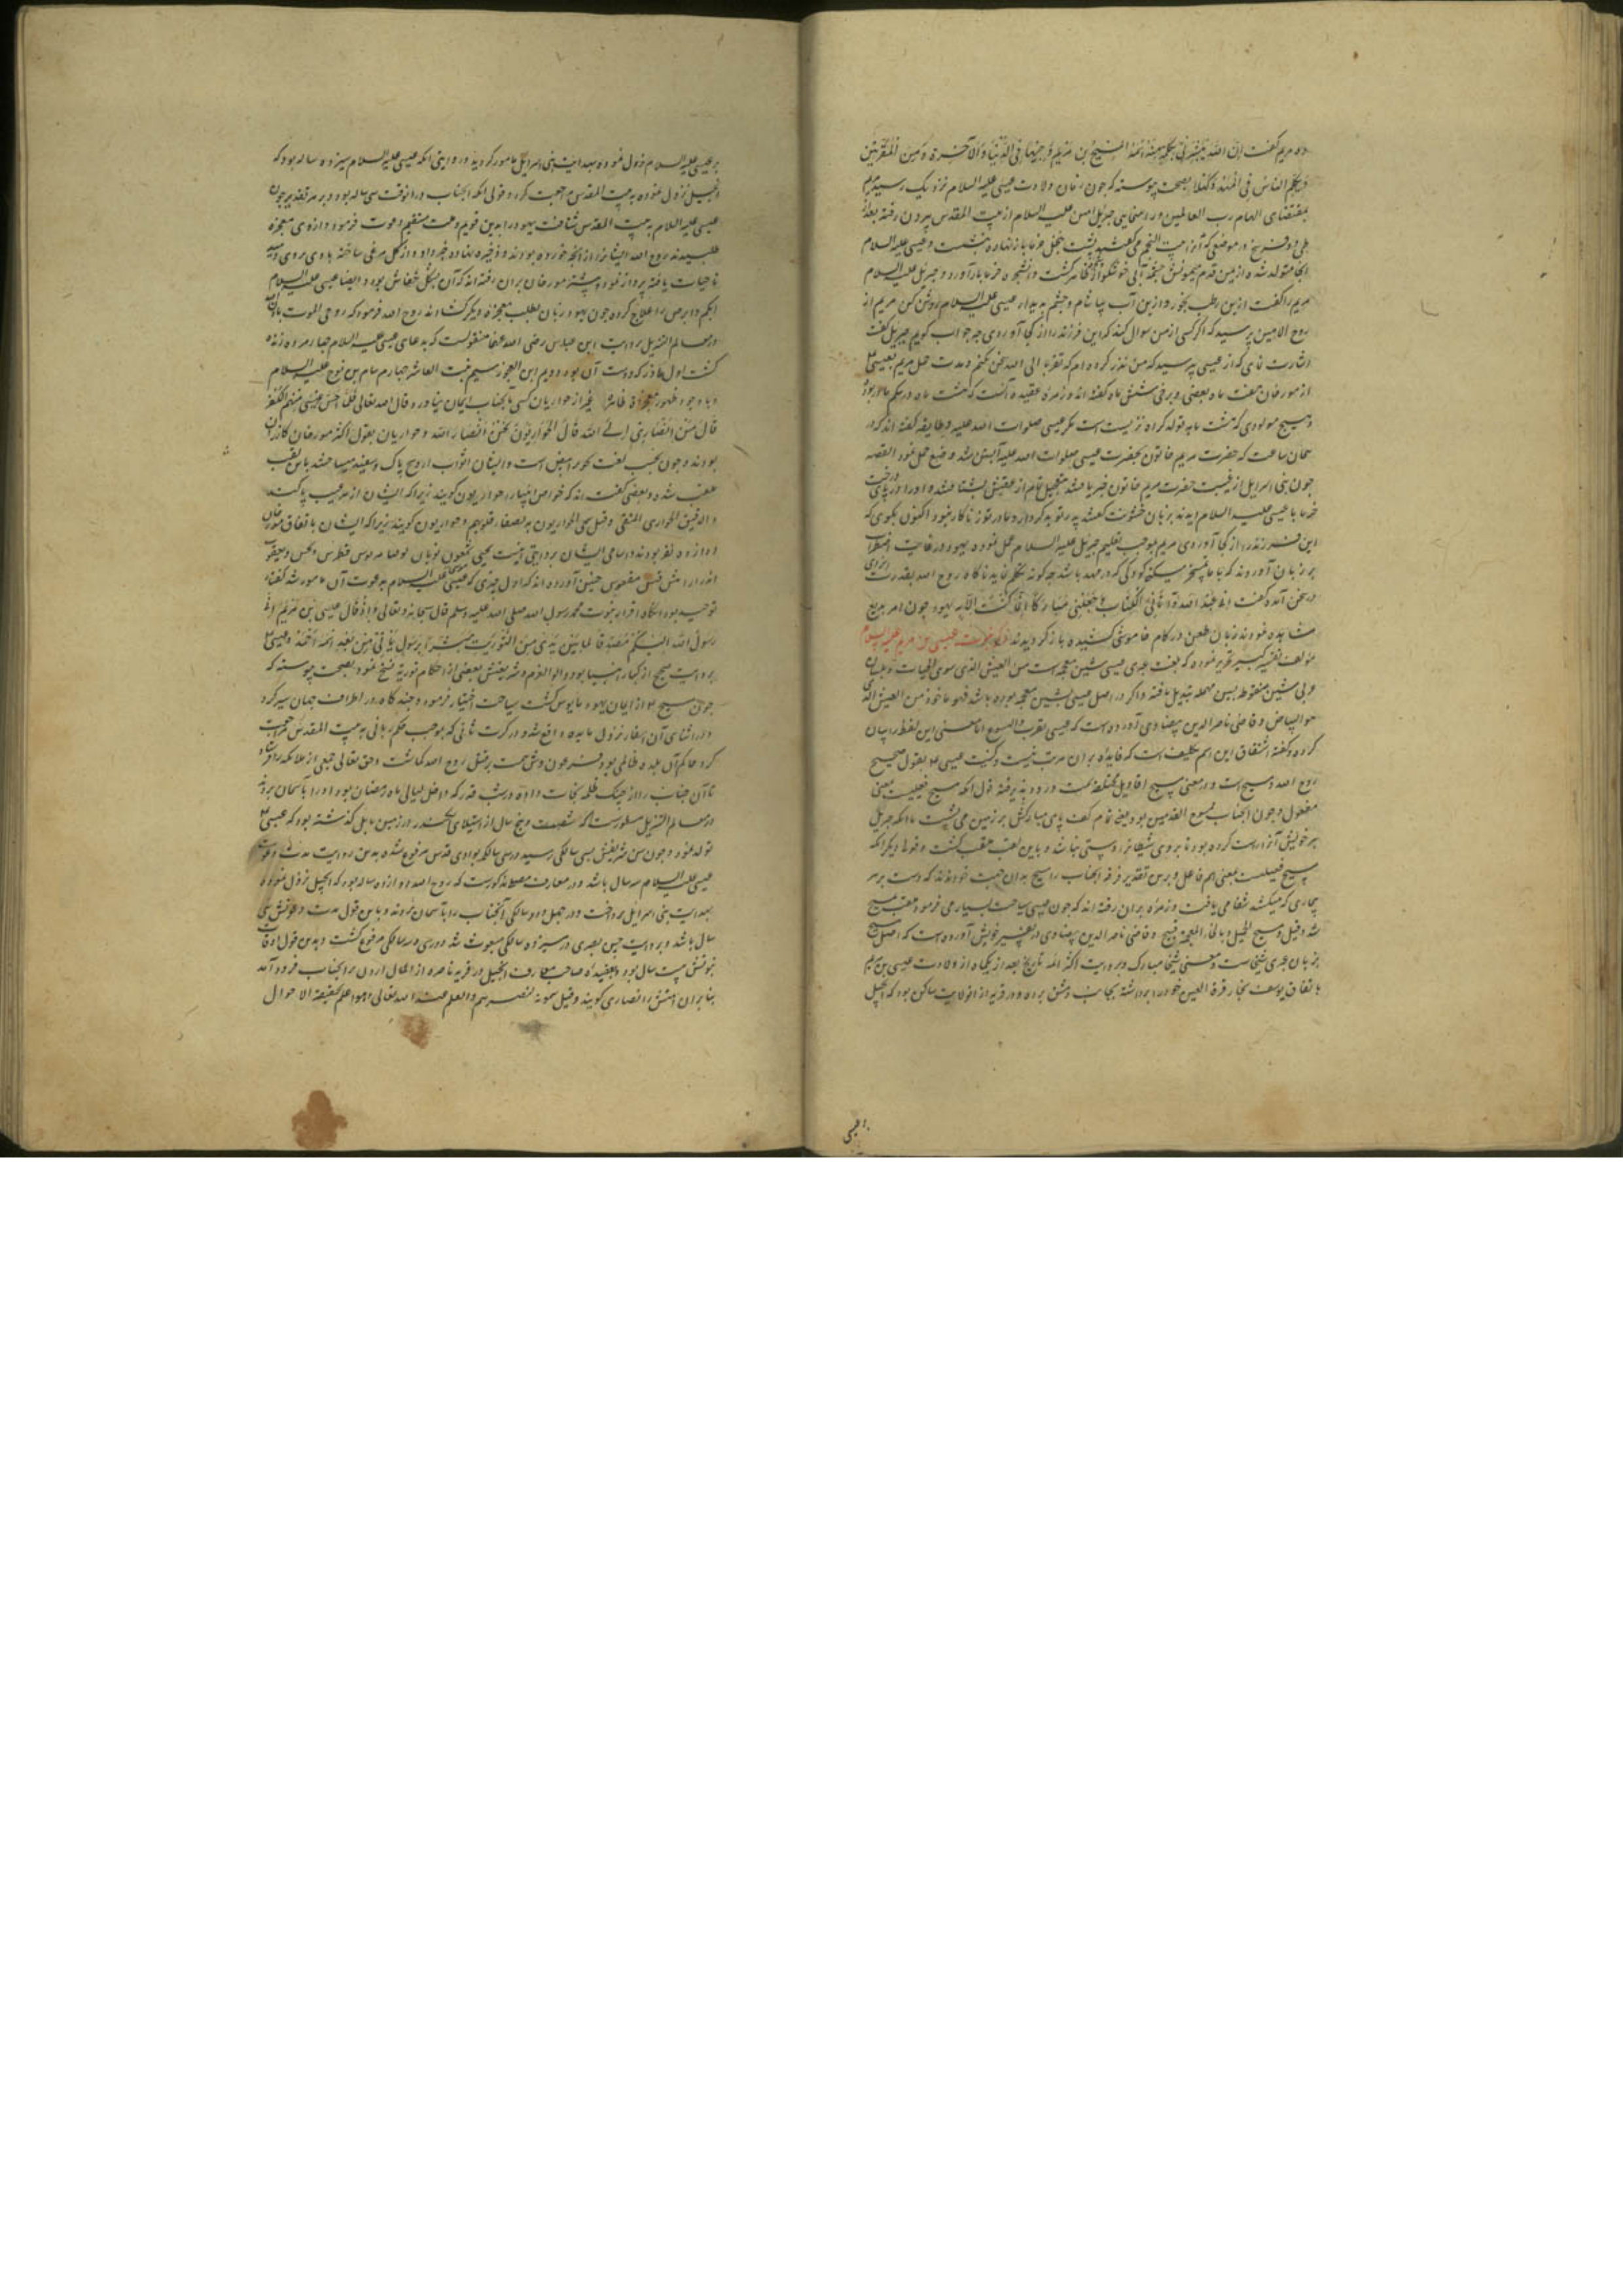 ده مریم گفت ان الله یبشرنی بکلمة منه اسمه المسیح بن مریم وجیها فی الدنیا والآخرة ومن المقربین
ویکلم الناس فی المهد وکهلا بصحت پیوسته که چون زمان ولادت عیسی علیه السلام نزدیک رسید مریم
بمقتضای الهام رب العالمین و راهنمایی جبریل امین علیه السلام از بیت المقدس بیرون رفته بعد از
طی دو فرسخ در موضعی که آنرا بیت اللحم می گفتند پشت بنخل خرما باز نهاده بنشست و عیسی علیه السلام
آنجا متولد شده از یمن قدم همیونش چشمه آبی خوشگوار ظاهر گشت و آن شجره خرما بار آورد و جبریل علیه السلام
مریم را گفت ازین رطب بخور و ازین آب بیاشام و چشم بدیدار عیسی علیه السلام روشن کن مریم از
روح الامین پرسید که اگر کسی از من سوال کند که این فرزند را از کجا آوردی چه جواب گویم جبریل گفت
اشارت نمای که از عیسی پرسید که من نذر کرده ام که تقربا الی الله سخن نکنم و مدت حمل مریم بعیسی
از مورخان هفت ماه بعضی و برخی شش ماه گفته اند و زمره عقیده آنست که هشت ماه در شکم مادر بود
و هیچ مولودی که هشت ماهه تولد کرده نزیست است مگر عیسی صلوات الله علیه و طایفه گفته اند که در
همان ساعت که حضرت مریم خاتون بحضرت عیسی صلوات الله علیه آبستن شد وضع حمل نمود القصه
چون بنی اسرایل از غیبت حضرت مریم خاتون خبر یافتند بتعجیل تمام از عقبش بشتافتند و او را در پای درخت
خرما با عیسی علیه السلام دیدند بزبان خشونت گفتند پدر تو بد کردار و مادر تو زناکار نبود اکنون بگوی که
این فرزند را از کجا آوردی مریم بموجب تعلیم جبریل علیه السلام عمل نموده یهود در غایت اضطراب
بر زبان آوردند که با ما تمسخر میکنی کودکی که در مهد باشد چه گونه تکلم نماید ناگاه روح الله بقدرت ایزدی
در سخن آمده گفت انی عبد الله آتانی الکتاب وجعلنی مبارکا این ما کنت الآیه یهود چون امر بدیع
مشاهده نمودند زبان طعن در کام خاموشی کشیده باز گردیدند ذکر نبوت عیسی بن مریم علیه السلام
مولف تفسیر کبیر تقریر نموده که بلغت عبری عیسی بشین معجمه است من العیش الذی سوی الحیات و بلسان
عربی شین منقوطه بسین مهمله تبدیل یافته و اگر در اصل عیسی بسین معجمه بوده باشد فهو ماخوذ من العیس الذی
هو البیاض و قاضی ناصر الدین بیضاوی آورده است که عیسی معرب الیسوع اما معنی این لفظ را بیان
کرده و گفته اشتقاق این اسم تکلیف است که فایده بران مرتب نیست و کنیت عیسی بقول صحیح
روح الله و مسیح است و در معنی مسیح اقاویل مختلفه است ورود پذیرفته قول آنکه مسیح فعیلیست بمعنی
مفعول و چون آنجناب ممسوح القدمین بود یعنی تمام کف پای مبارکش بر زمین می نشست یا آنکه جبریل
بپر خویش آنرا راست کرده بود تا بروی شیطانرا دستی نباشد باین لقب ملقب گشت و قول دیگر آنکه
مسیح فعیلست بمعنی اسم فاعل و برین تقدیر فرقه آنجناب را مسیح بدان جهت خوانده اند که دست بر سر
بیماری که میکشید شفا می یافت و زمره بران رفته اند که چون عیسی سیاحت بسیار می فرمود ملقب بمسیح
شد و قاضی ناصر الدین بیضاوی در تفسیر خویش آورده است که اصل مسیح
بزبان عبری مشیحاست و معنی مشیحا مبارک و بروایت اکثر ائمه تاریخ بعد از یکماه از ولادت عیسی بن مریم
باتفاق یوسف نجار قرة العین خود را برداشته بجانب دمشق برده و در قریه از انولایت ساکن بود که انجیل
بر عیسی
بر عیسی علیه السلام نزول نموده بهدایت بنی اسرایل مامور گردید و روایتی آنکه عیسی علیه السلام سیزده ساله بود که
انجیل نزول نموده به بیت المقدس مراجعت کرد و قولی آنکه آنجناب درانوقت سی ساله بود و بر هر تقدیر چون
عیسی علیه السلام به بیت المقدس شتافت یهود را بدین قویم و ملت مستقیم دعوت فرمود و از وی معجزه
طلبیدند روح الله ایشانرا از آنچه خورده بودند و ذخیره نهاده خبر داد و از گل مرغی ساخته باد بروی دمید
تا حیات یافته پرواز نمود و بیشتر مورخان بران رفته اند که آن بشکل خفاش بود و ایضا عیسی علیه السلام
ابکم و ابرص را علاج کرده چون یهود زبان بطلب معجزه دیگر گشادند روح الله فرمود که روحی الموت باذن الله
در معالم التنزیل بروایت ابن عباس رضی الله عنهما منقولست که بدعای عیسی علیه السلام چهار مرده زنده
گشت اول عاذر که دوست آن بود دویم ابن العجوز سیم بنت العاشر چهارم سام بن نوح علیه السلام
و با وجود ظهور معجزه ظاهره غیر از حواریان کسی بآنجناب ایمان نیاورد و قال الله تعالی فلما احس عیسی منهم الکفر
قال من انصاری الی الله قال الحواریون نحن انصار الله و حواریان بقول اکثر مورخان گازران
بودند و چون بحسب لغت حور ابیض است و ایشان اثواب را پاک و سفید میساختند باین لقب
ملقب شدند و بعضی گفته اند که خواص انبیا را حواریون گویند زیرا که ایشان از هر عیب پاکند
والدقیق الحواری المنقی و قیل سمی الحواریون به لصفاء قلوبهم و حواریون گویند زیرا که ایشان باتفاق مورخان
دوازده نفر بودند و اسامی ایشان بروایتی اینست یحیی شمعون
اول چیزی که عیسی علیه السلام بدعوت آن مامور شد کلمه
توحید بود آنگاه اقرار نبوت محمد رسول الله صلی الله علیه وسلم قال سبحانه وتعالی واذ قال عیسی بن مریم انی
رسول الله الیکم مصدقا لما بین یدی من التوریة ومبشرا برسول یاتی من بعدی اسمه احمد و عیسی
بروایت صحیح از کبار انبیا بود و اولو العزم و شریعتش بعضی از احکام توریة نسخ نمود بصحت پیوسته که
چون مسیح از ایمان یهود مایوس گشت سیاحت اختیار فرمود و چند گاه در اطراف جهان سیر کرد
و در اثنای آن اسفار نزول مایده واقع شد و در کرت ثانی که بموجب حکم ربانی به بیت المقدس مراجعت
کرد حاکم آن بلده ظالمی بود فرعون وش همت بر قتل روح الله گماشت و حق تعالی جمعی از ملائکه را فرستاد
تا آن جناب را از چنگ ظلمه نجات داده در شب قدر که داخل لیالی ماه رمضان بود او را بآسمان بردند
در معالم التنزیل مسطورست که شصت و پنج سال از استیلای اسکندر در زمین بابل گذشته بود که عیسی
تولد نمود و چون سن شریفش بسی سالگی رسید و در سی سالگی بوادی قدس مرفوع شد بدین روایت مدت دعوت
عیسی علیه السلام سه سال باشد و در معارف مذکورست که روح الله دوازده ساله بود که انجیل نزول نموده
بهدایت بنی اسرایل پرداخت و در چهل و دو سالگی آنجناب را بآسمان بردند و باین قول مدت دعوتش سی
سال باشد و بروایت حسن بصری در سیزده سالگی مبعوث شد و در سی و سه سالگی مرفوع گشت و بدین قول اوقات
نبوتش بیست سال بود و بعقیده صاحب معارف انجیل در قریه ناصره از اعمال اردن بر آنجناب فرود آمد
بنا بران امتش را نصاری گویند و قیل سموه لنصرتهم والعلم عند الله تعالی هو اعلم بحقیقة الاحوال